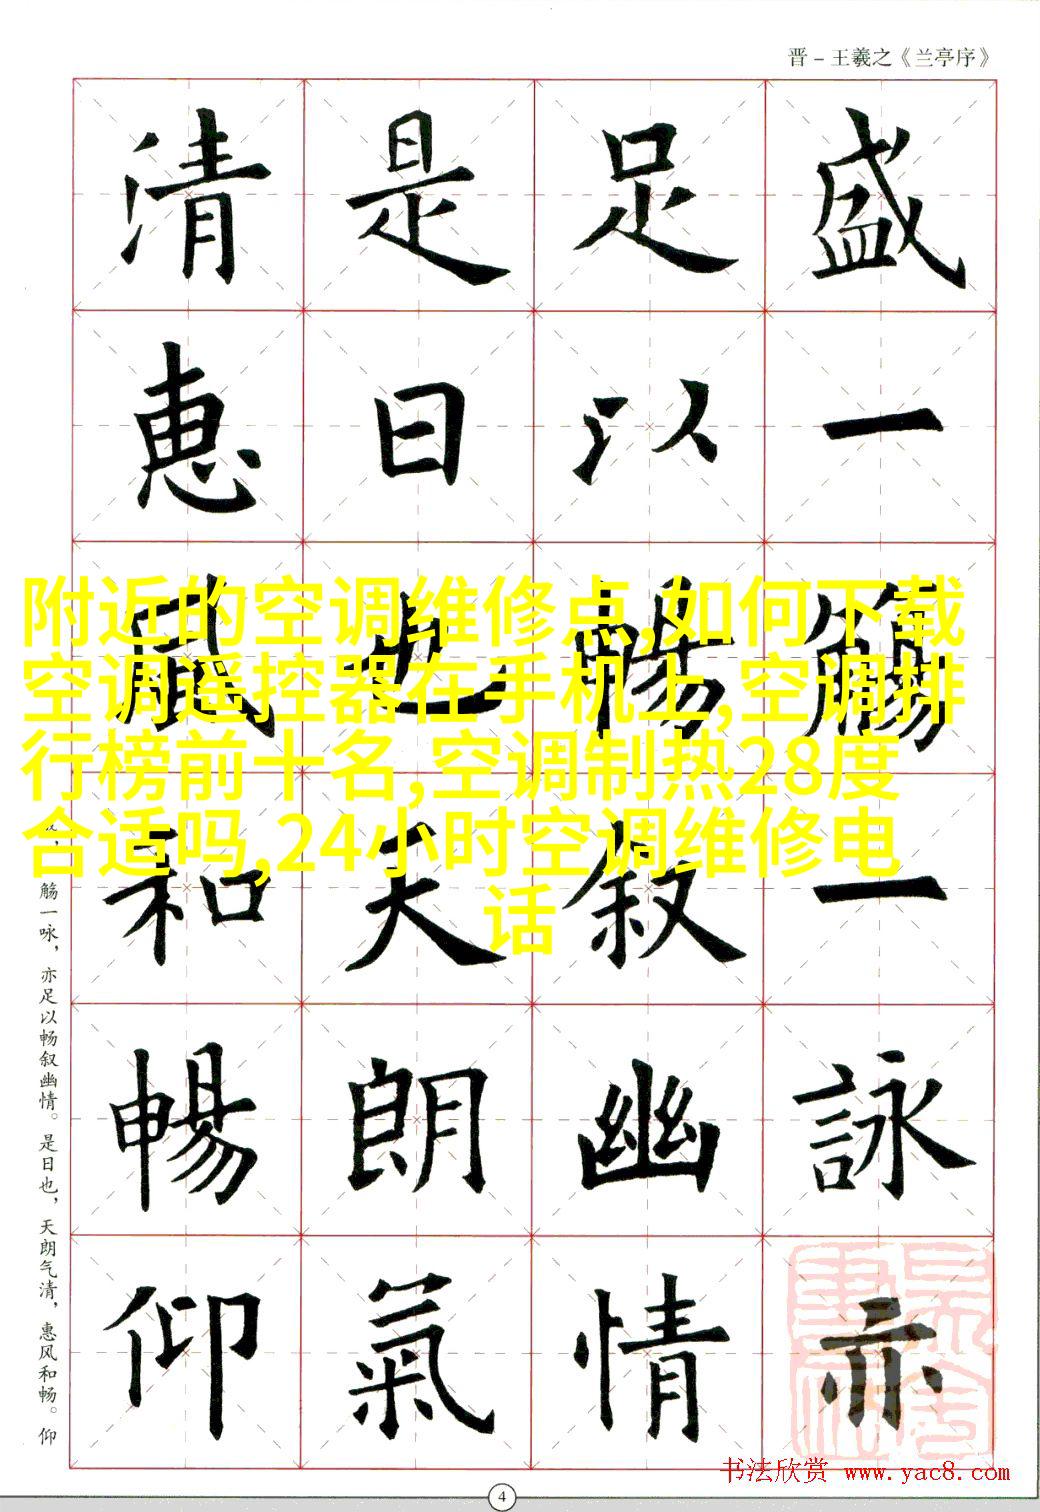 晋－王羲之《兰亭序》
盛一觴一詠亦
足以暢敘幽情
是日也天朗氣
清惠風和暢仰
附近的空调维修点,如何下载
空调遥控器在手机上,空调排
行榜前十名,空调制热28度
合适吗,24小时空调维修电
话
觞一咏，亦足以畅叙幽情。是日也，天朗气清，惠风和畅。仰
书法欣赏 www.yac8.com
4